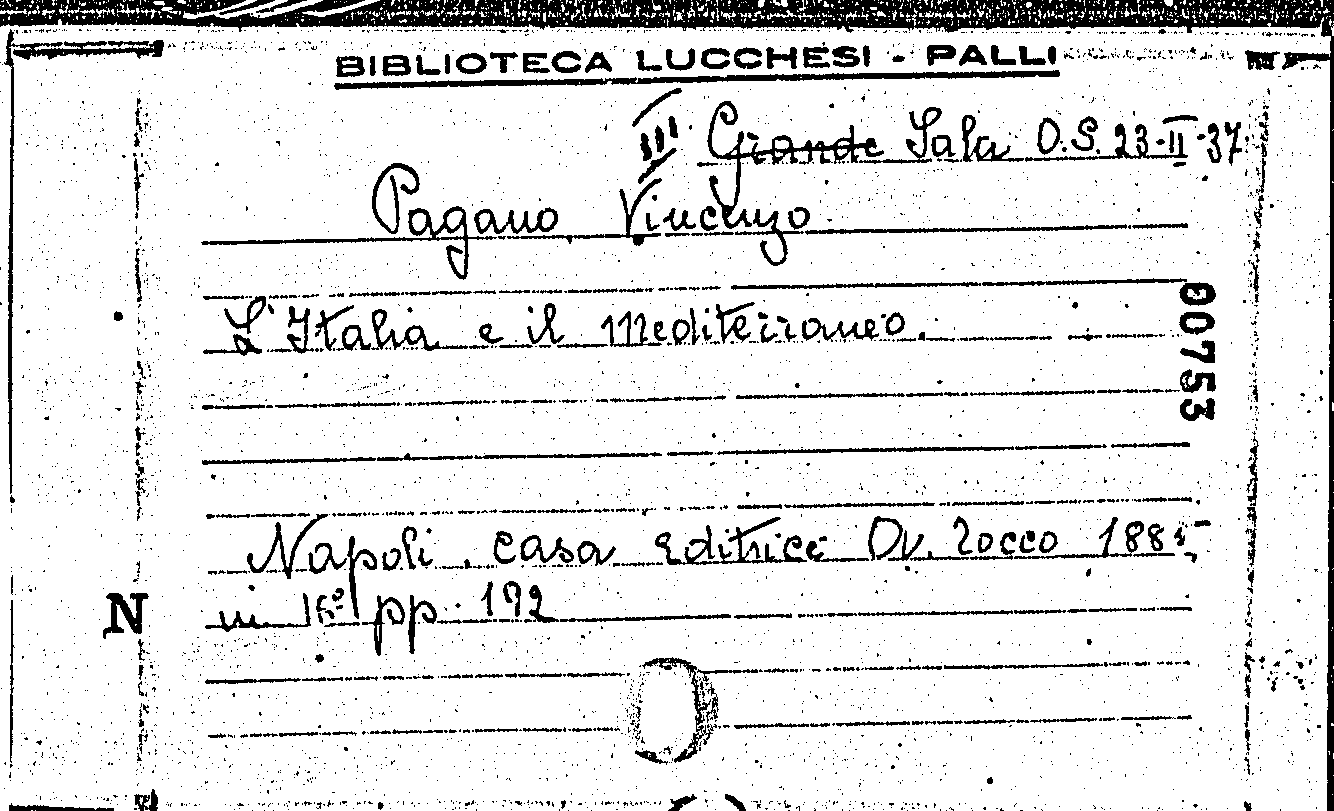 BIBLIOTECA LUCCHESI - PALLI
III Grande Sala O.S. 23-II-37
Pagano, Vincenzo
L'Italia e il Mediterraneo.
00753
Napoli. Casa Editrice Ov. Zocco 1885
in 16º pp. 192
N